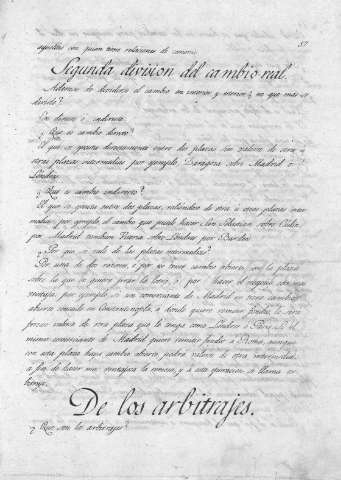 57
aquellas con quien tiene relaciones de comercio.
Segunda division del cambio real.
Ademas de dividirse el cambio en interior y exterior; en que mas se
divide?
En directo é indirecto.
¿Que es cambio directo?
El que se gira directamente entre dos plazas sin valerse de otra ú
otras plazas intermedias por ejemplo Zaragoza sobre Madrid ó
Londres.
¿Que es cambio indirecto?
El que se gira entre dos plazas, valiendose de otra ú otras plazas inter
medias: por ejemplo el cambio que puede hacer San Sebastian sobre Cadiz
por Madrid tambien Vitoria sobre Londres por Burdeos
¿Por que se vale de las plazas intermedias?
Por una de dos razones, ó por no tener cambio abierto con la plaza
sobre la que se quiere girar la letra, ó para hacer el negocio con mas
ventaja, por ejemplo: si un comerciante de Madrid no tiene cambio
abierto con Constantinopla, á donde quiere remitir fondos, le sera
forzoso valerse de otra plaza que lo tenga como Londres ó Paris. Si el
mismo comerciante de Madrid quiere remitir fondos á Roma, aunque
con esta plaza haya cambio abierto, podra valerse de otra intermedia,
á fin de hacer mas ventajosa la remesa, y á esta operacion se llama ar
bitraje.
De los arbitrajes.
¿Que son los arbitrajes?